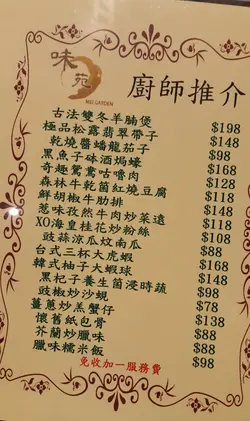 味苑
MUI GARDEN
廚師推介
古法雙冬羊腩煲 $198
極品松露翡翠帶子 $148
乾燒醬蟠龍茄子 $98
黑魚子砵酒焗蠔 $168
奇趣鴛鴦咕嚕肉 $128
森林牛乾菌紅燒豆腐 $118
鮮胡椒牛肋排 $148
惹味孜然牛肉炒菜遠 $118
XO海皇桂花炒粉絲 $108
豉蒜涼瓜炆南瓜 $88
台式三杯大虎蝦 $168
韓式柚子大蝦球 $148
黑杞子養生菌浸時蔬 $98
豉椒炒沙蜆 $78
薑蔥炒羔蟹仔 $138
懷舊紙包骨 $88
芥蘭炒臘味 $88
臘味糯米飯 $98
免收加一服務費